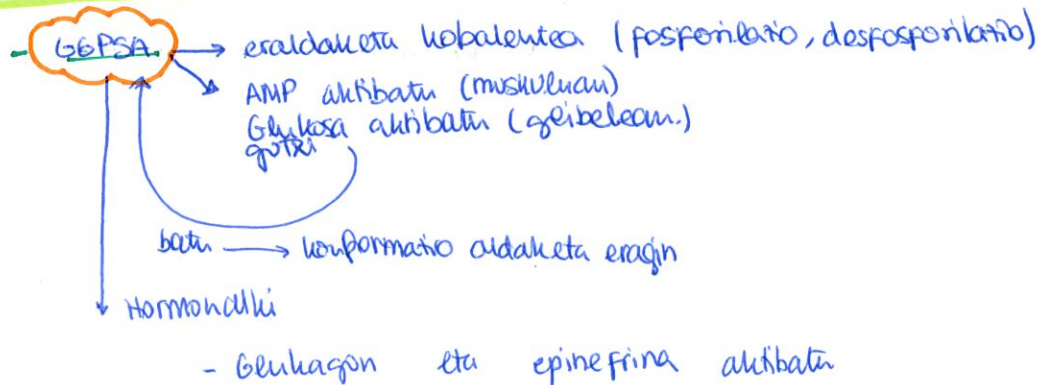 - GGPSA → eraldaketa kobalentea (fosforilatio, desfosforilatio)
AMP aktibatu (muskuluan)
Glukosa aktibatu (gibelean.)
gutxi
batu → konformatio aldaketa eragin
Hormonalki
- Glukagon eta epinefrina aktibatu